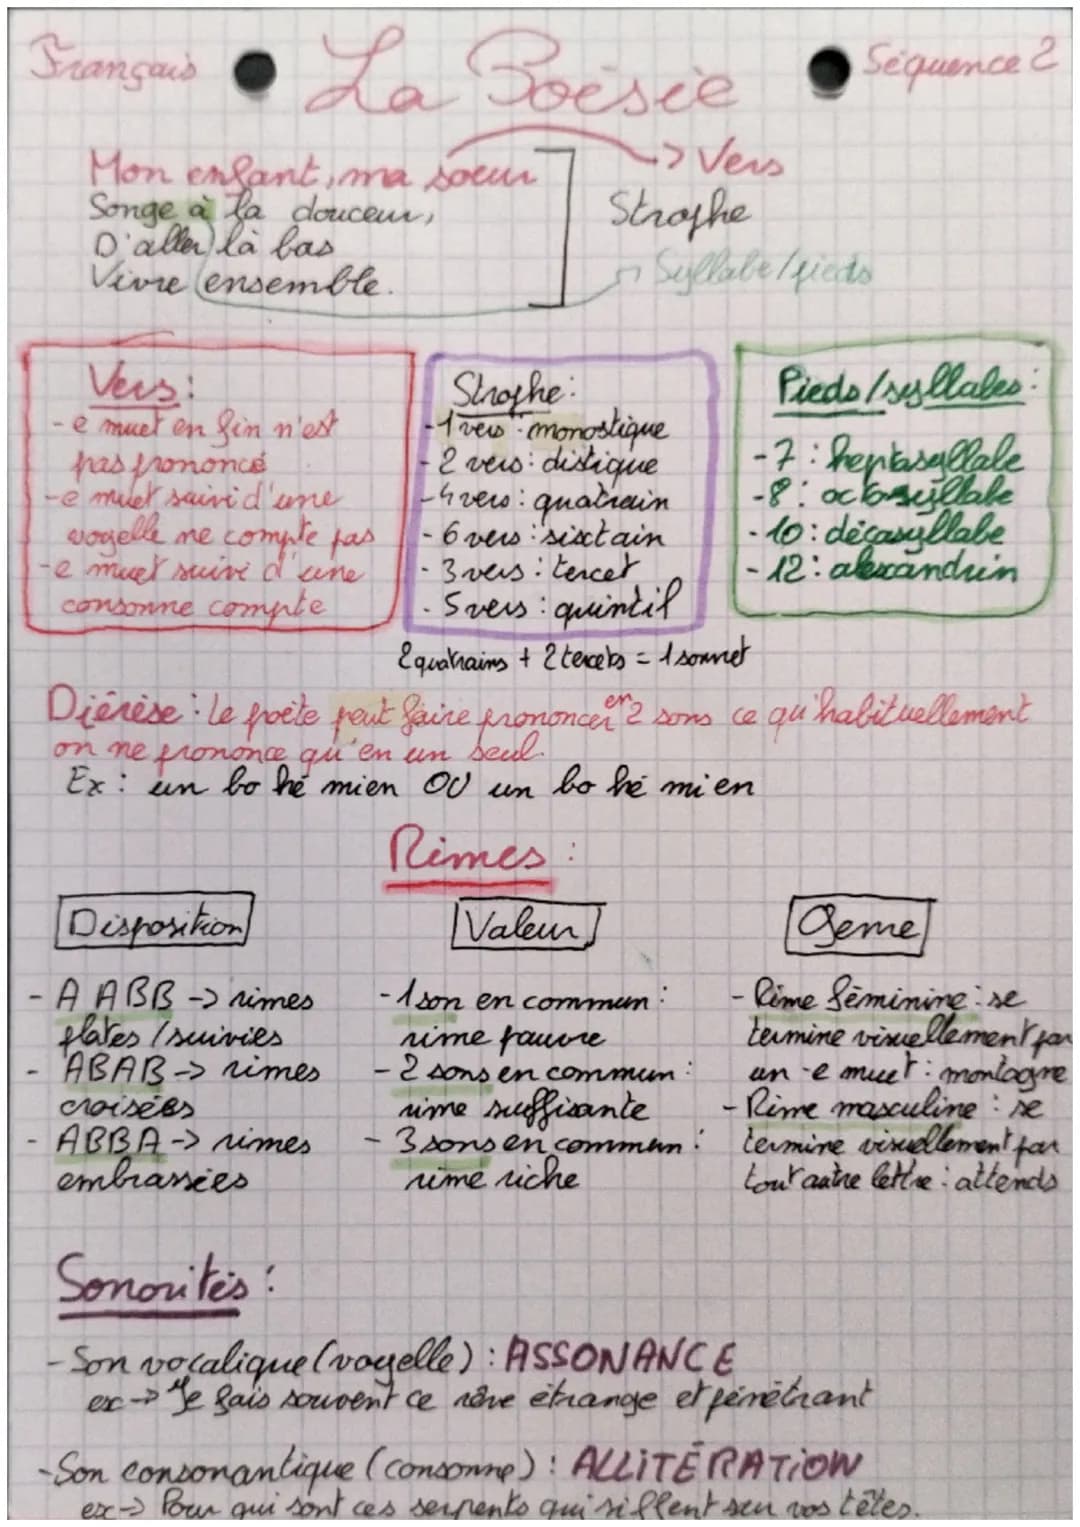 Français La Poésie Séquence 2
Mon enfant, ma soeur -> Vers
Songe à la douceur, Strophe
D'aller là bas
Vivre ensemble. Syllabe/pieds
Vers :
- e muet en fin n'est
pas prononcé
- e muet suivi d'une
voyelle ne compte pas
- e muet suivi d'une
consonne compte
Strophe :
- 1 vers : monostique
- 2 vers : distique
- 4 vers : quatrain
- 6 vers : sixtain
- 3 vers : tercet
- 5 vers : quintil
Pieds/syllabes :
- 7 : heptasyllabe
- 8 : octosyllabe
- 10 : décasyllabe
- 12 : alexandrin
2 quatrains + 2 tercets = 1 sonnet
Diérèse : Le poète peut faire prononcer en 2 sons ce qu'habituellement
on ne prononce qu'en un seul.
Ex : un bo hé mien OU un bo hé mi en
Rimes :
Disposition
- AABB -> rimes
plates/suivies
- ABAB -> rimes
croisées
- ABBA -> rimes
embrassées
Valeur
- 1 son en commun :
rime pauvre
- 2 sons en commun :
rime suffisante
- 3 sons en commun :
rime riche
Genre
- Rime féminine : se
termine visuellement par
un -e muet : montagne
- Rime masculine : se
termine visuellement par
tout autre lettre : attends
Sonorités :
- Son vocalique (voyelle) : ASSONANCE
ex -> "Je fais souvent ce rêve étrange et pénétrant
- Son consonantique (consonne) : ALLITÉRATION
ex -> Pour qui sont ces serpents qui sifflent sur vos têtes.